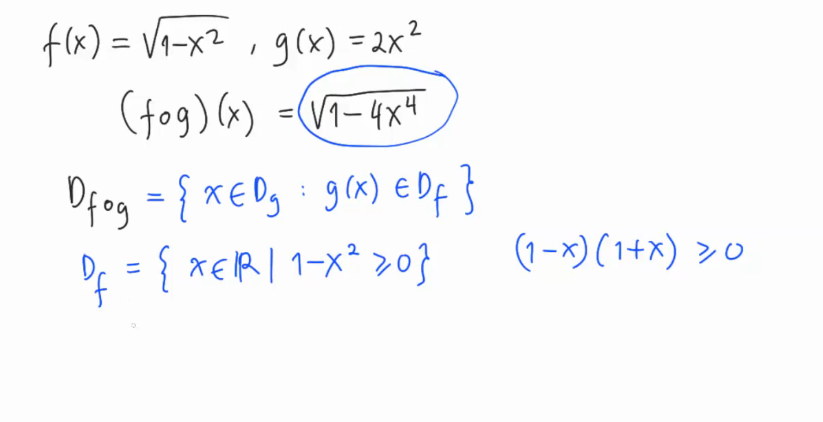 f(x) = √1-x² , g(x) = 2x²
(fog)(x) = √1-4x⁴
D_fog = { x ∈ D_g : g(x) ∈ D_f }
D_f = { x ∈ ℝ | 1-x² ⩾ 0 } (1-x)(1+x) ⩾ 0